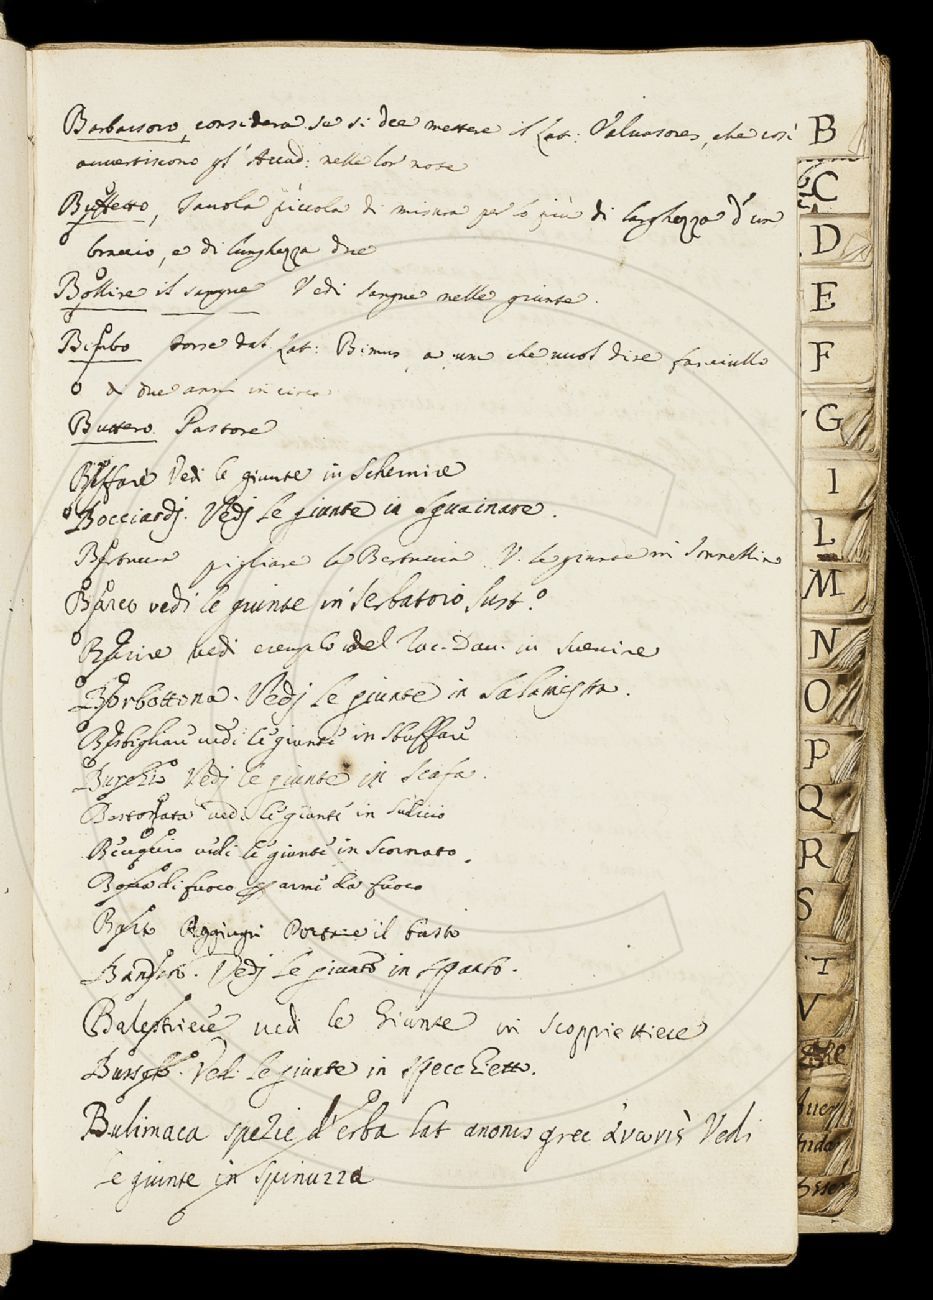 Barbassoro, considera se si dee mettere il Lat: Valuasores, che così
auuertiscono gl' Accad: nelle lor note
Buffetto, Tauola piccola di misura per lo più di larghezza d'un
braccio, e di lunghezza due
Bollire il sangue Vedi sangue nelle giunte.
Bimbo forse dal Lat: Bimus, a um che uuol dire fanciullo
di due anni in circa
Buttero Pastore
Beffare Vedi le giunte in Schernire
Bocciardj. Vedj le giunte in Sguainare.
Bertuccia pigliare la Bertuccia V. le giunte in
Barco vedi le giunte in Serbatoio Sust.o
vedi esempio del Toc. Dau. in Suenire
Borbottona. Vedj le giunte in
Bisbigliare uedi le giunte in Sbuffare
Burchio Vedj le giunte in Scafa.
uedi le giunte in
uedi le giunte in Scornato.
di fuoco armi da fuoco
Busto Aggiugni Portare il busto
Vedj le giunte in
Balestriere uedi le Giunte in Scoppiettiere
Vedi le giunte in Specchietto.
Bulimaca spezie d'erba lat anonis grec ἀνωνὶς Vedi
le giunte in Spinuzza
B
C
D
E
F
G
I
L
M
N
O
P
Q
R
S
T
V